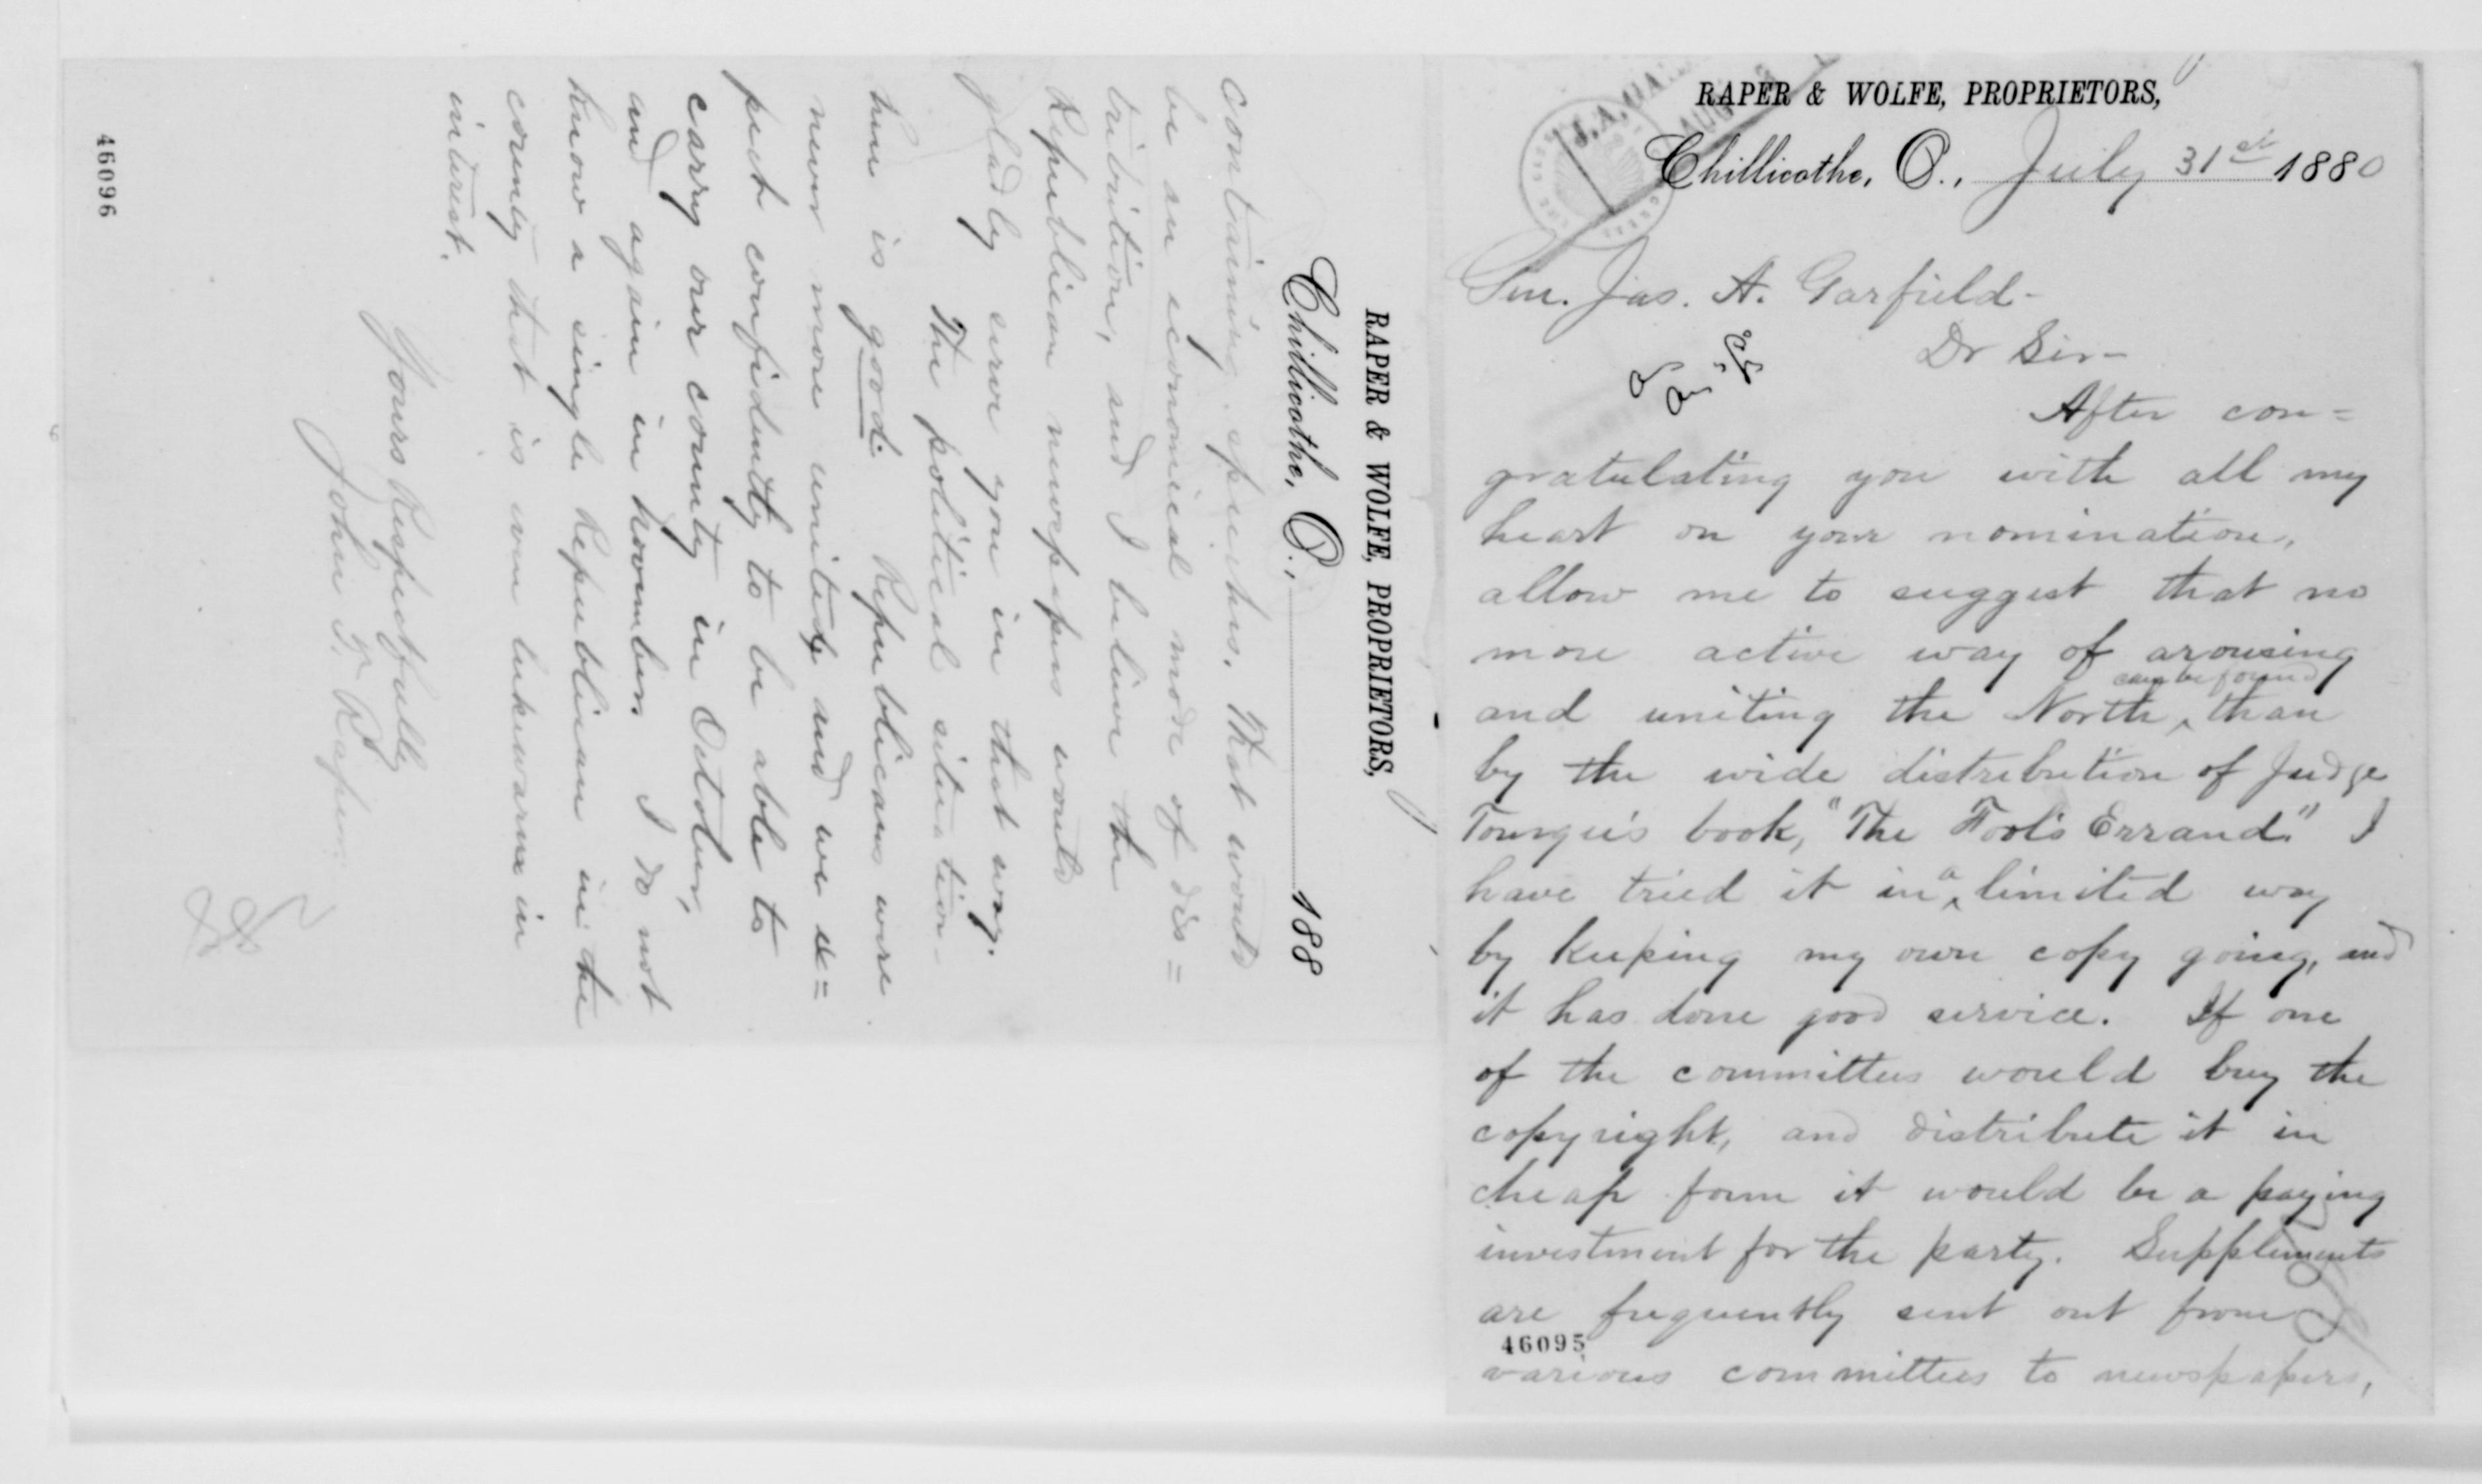 RAPER & WOLFE, PROPRIETORS,
Chillicothe, O., July 31st 1880
Gen. Jas. A. Garfield-
Dr Sir-
After con=
gratulating you with all my
heart on your nomination,
allow me to suggest that no
more active way of arousing
can be found
and uniting the North ‸ than
by the wide distribution of Judge
Tourgee's book, "The Fool's Errand." I
have tried it in ‸a limited way
by keeping my own copy going, and
it has done good service. If one
of the committees would buy the
copyright, and distribute it in
cheap form it would be a paying
investment for the party. Supplements
are frequently sent out from
46095
various committees to newspapers,
RAPER & WOLFE, PROPRIETORS,
Chillicothe, O., 188
containing speeches. That would
be an economical mode of dis=
tribution, and I believe the
Republican newspapers would
gladly serve you in that way.
The political situation
here is good. Republicans were
never more united, and we ex=
pect confidently to be able to
carry our county in October,
and again in November. I do not
know a single Republican in the
county that is even lukewarm in
interest.
Yours Respectfully
John T. Raper
46096